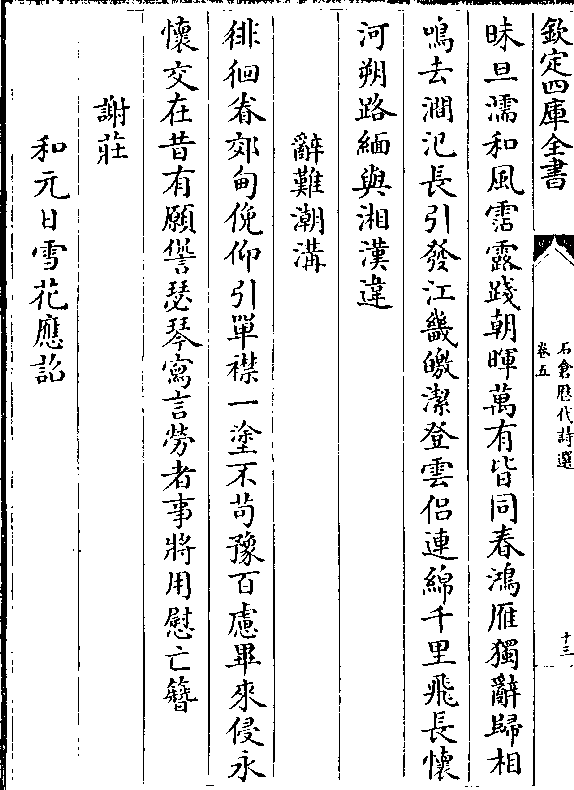 欽定四庫全書
石倉厯代詩選
卷五
十三
昧旦濡和風霑露踐朝暉萬有皆同春鴻雁獨辭歸相
鳴去澗汜長引發江畿皦潔登雲侣連綿千里飛長懷
河朔路緬與湘漢違
辭難潮溝
徘徊眷郊甸俛仰引單襟一塗不苟豫百慮畢來侵永
懷交在昔有願讐瑟琴寫言勞者事將用慰亡簪
謝莊
和元日雪花應詔